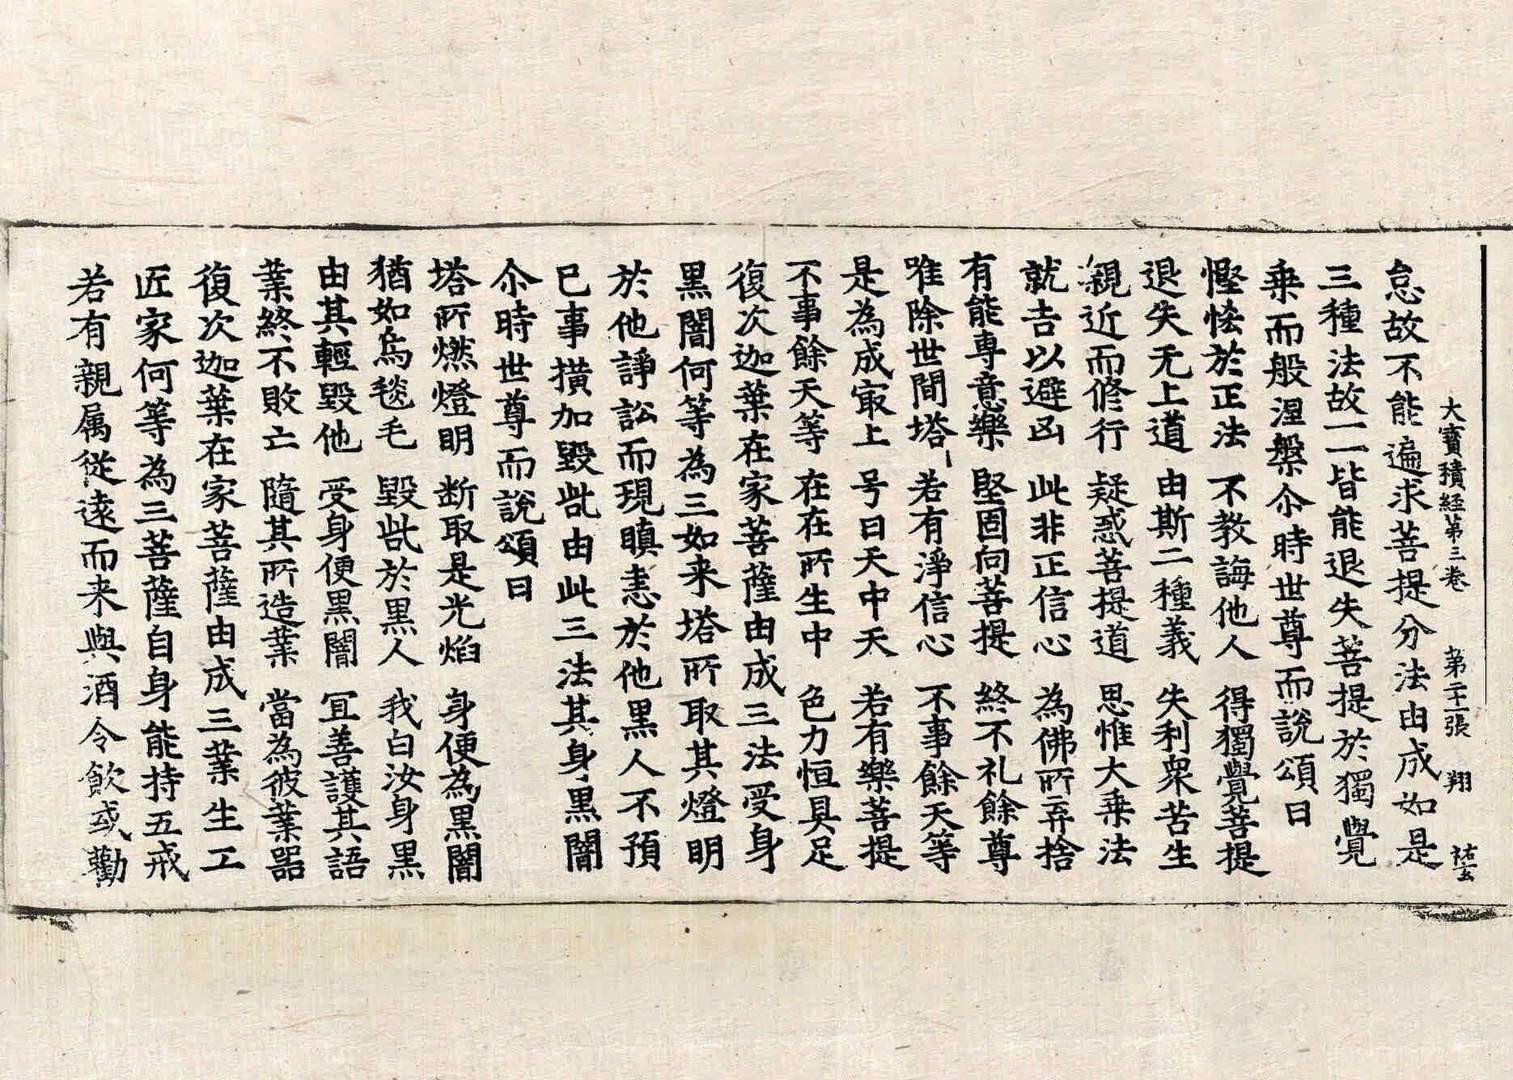 大寶積經第三卷 第二十一張 翔
怠故不能遍求菩提分法由成如是
三種法故一一皆能退失菩提於獨覺
乗而般涅槃尒時世尊而說頌曰
慳悋於正法 不教誨他人 得獨覺菩提
退失无上道 由斯二種義 失利衆苦生
親近而修行 疑惑菩提道 思惟大乗法
就吉以避凶 此非正信心 為佛所弃捨
有能専意樂 堅固向菩提 終不礼餘尊
唯除世間塔 若有淨信心 不事餘天等
是為成㝡上 号曰天中天 若有樂菩提
不事餘天等 在在所生中 色力恒具足
復次迦葉在家菩薩由成三法受身
黒闇何等為三如来塔所取其燈明
於他諍訟而現瞋恚於他黒人不預
巳事横加毀呰由此三法其身黒闇
尒時世尊而說頌曰
塔所燃燈明 断取是光焰 身便為黒闇
猶如烏毯毛 毀呰於黒人 我白汝身黒
由其輕毀他 受身便黒闇 冝善護其語
業終不敗亡 隨其所造業 當為彼業器
復次迦葉在家菩薩由成三業生工
匠家何等為三菩薩自身能持五戒
若有親属從遠而来與酒令飲或勸